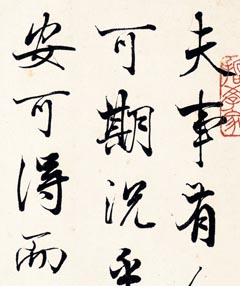 夫事有
可期況乎
安可得而